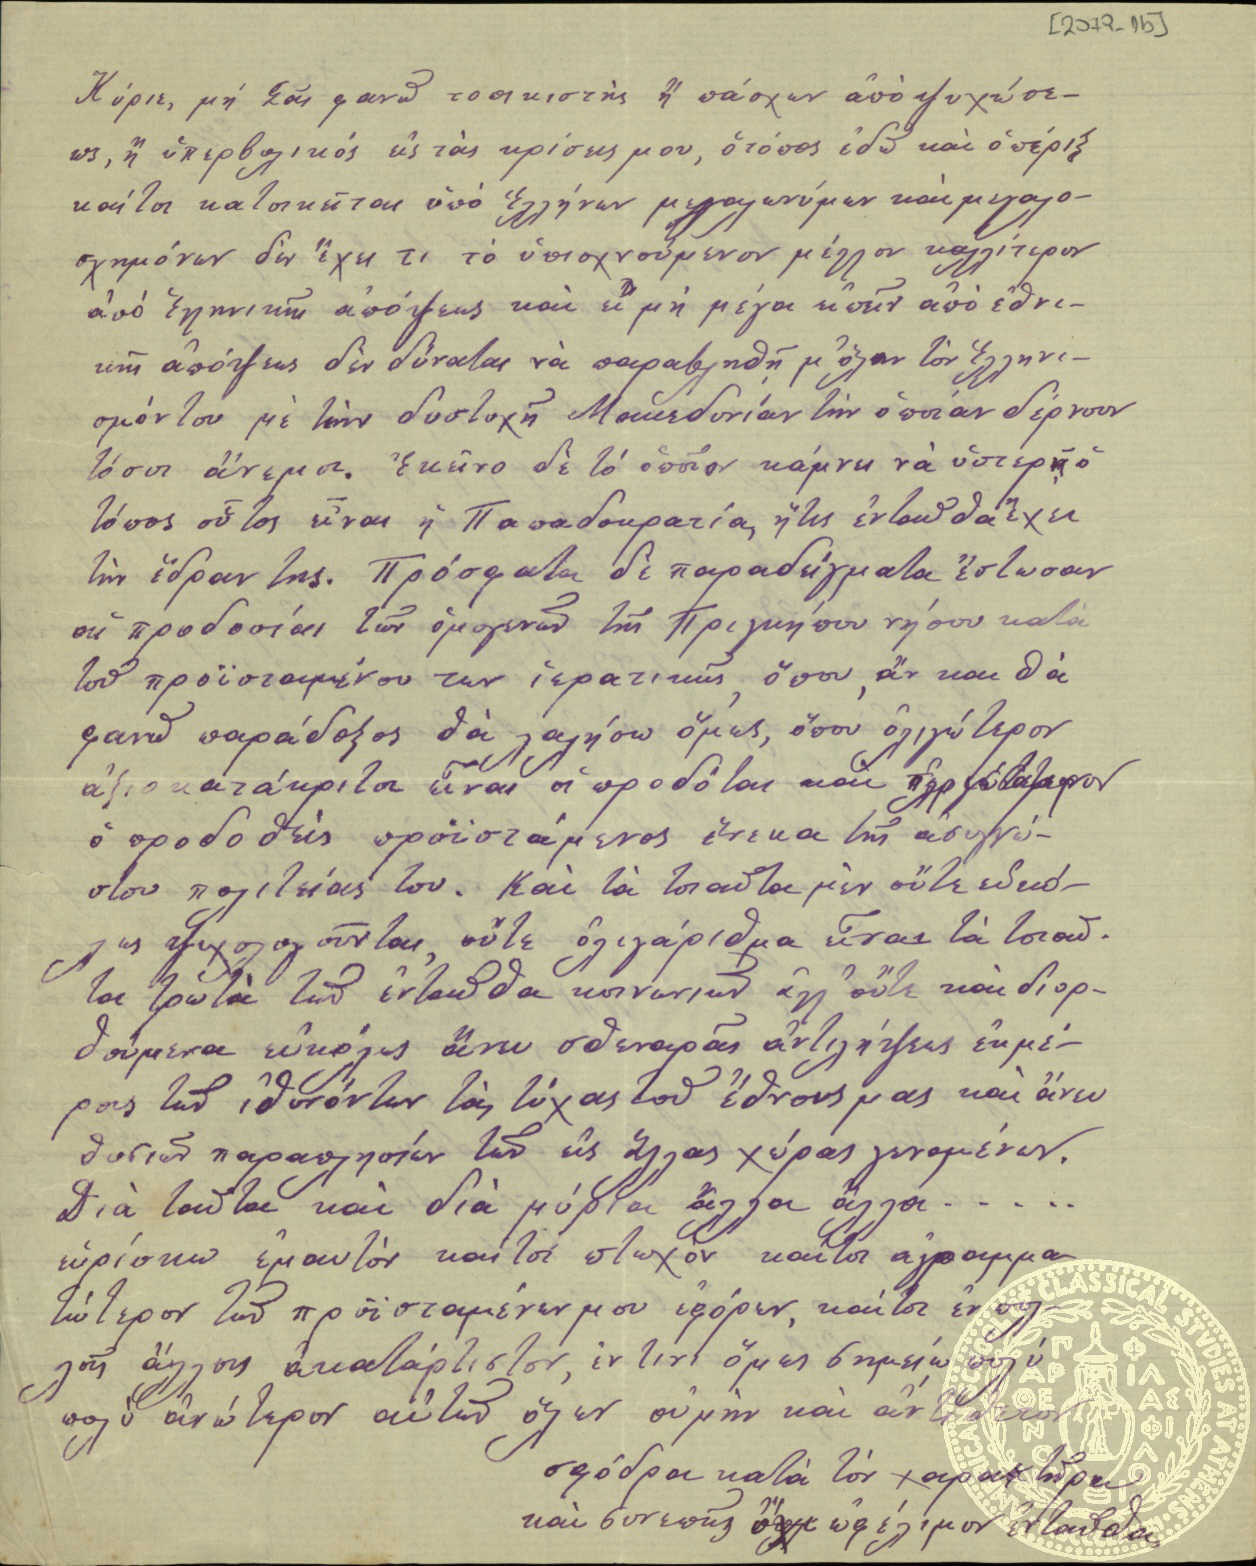 [2072-1b]
Κύριε, μή Σᾶς φανῶ τοπικιστὴς ἢ πάσχων ἀπὸ ψυχώσε-
ως, ἢ ὑπερβολικός εἰς τὰς κρίσεις μου, ὁ τόπος ἐδῶ καὶ ὁ πέριξ
καίτοι κατοικεῖται ὑπό Ἑλλήνων μεγαλωνύμων καὶ μεγαλο-
σχημόνων δὲν ἔχει τι τὸ ὑπισχνούμενον μέλλον καλλίτερον
ἀπό Ἑληνικῆς ἀπόψεως καὶ εἰ μή μέγα εἰπεῖν ἀπὸ ἐθνι-
κῆς ἀπόψεως δὲν δύναται νὰ παραβληθῇ μ' ὅλον τὸν Ἑλληνι-
σμόν του μὲ τὴν δυστυχῆ Μακεδονίαν τὴν ὁποίαν δέρνουν
τόσοι ἄνεμοι. Ἐκεῖνο δὲ τό ὁποῖον κάμνει νὰ ὑστερῇ ὁ
τόπος οὗτος εἶναι ἡ Παπαδοκρατία, ἥτις ἐνταῦθα ἔχει
τὴν ἕδραν της. Πρόσφατα δὲ παραδείγματα ἔστωσαν
αἱ προδοσίαι τῶν ὁμογενῶν τῆς Πριγκήπου νήσου κατὰ
τοῦ προϊσταμένου των ἱερατικῶς, ὅπου, ἂν και θὰ
φανῶ παράδοξος θὰ λαλήσω ὅμως, ὅπου ὀλιγώτερον
ἀξιοκατάκριτοι εἶναι οἱ προδόται καὶ
ὁ προδοθείς προϊστάμενος ἕνεκα τῆς ἀσυγνώ-
στου πολιτείας του. Καὶ τὰ τοιαῦτα μὲν οὔτε εὐκό-
λως ψυχολογοῦνται, οὔτε ὀλιγάριθμα εἶναι τὰ τοιαῦ-
τα τρωτὰ τῶν ἐνταῦθα κοινωνιῶν ἀλλ' οὔτε καὶ διορ-
θούμενα εὐκόλως ἄνευ σθεναρᾶς ἀντιλήψεως ἐκ μέ-
ρους τῶν ἰθυνόντων τὰς τύχας τοῦ ἔθνους μας καὶ ἄνευ
θυσιῶν παραπλησίων τῶν εἰς ἄλλας χώρας γενομένων.
Διὰ ταῦτα καὶ διὰ μύρια ἄλλα ἄλλα . . . . .
εὑρίσκω ἐμαυτόν καίτοι πτωχὸν καίτοι ἀγραμμα-
τώτερον τῶν προϊσταμένων μου ἐφόρων, καίτοι ἐν πολ-
λοῖς ἄλλοις ἀκατάρτιστον, ἐν τινι ὅμως σημείῳ πολύ
πολὺ ἀνώτερον αὐτῶν ὅλων οὐ μὴν καὶ ἀντίθετον
σφόδρα κατὰ τόν χαρακτῆρα
καὶ συνεπῶς ὠφέλιμον ἐνταῦθα,
AMERICAN SCHOOL OF CLASSICAL STUDIES AT ATHENS
ΠΑΡΘΕΝΟΣ ΦΙΛΑΣ ΦΙΛΟ